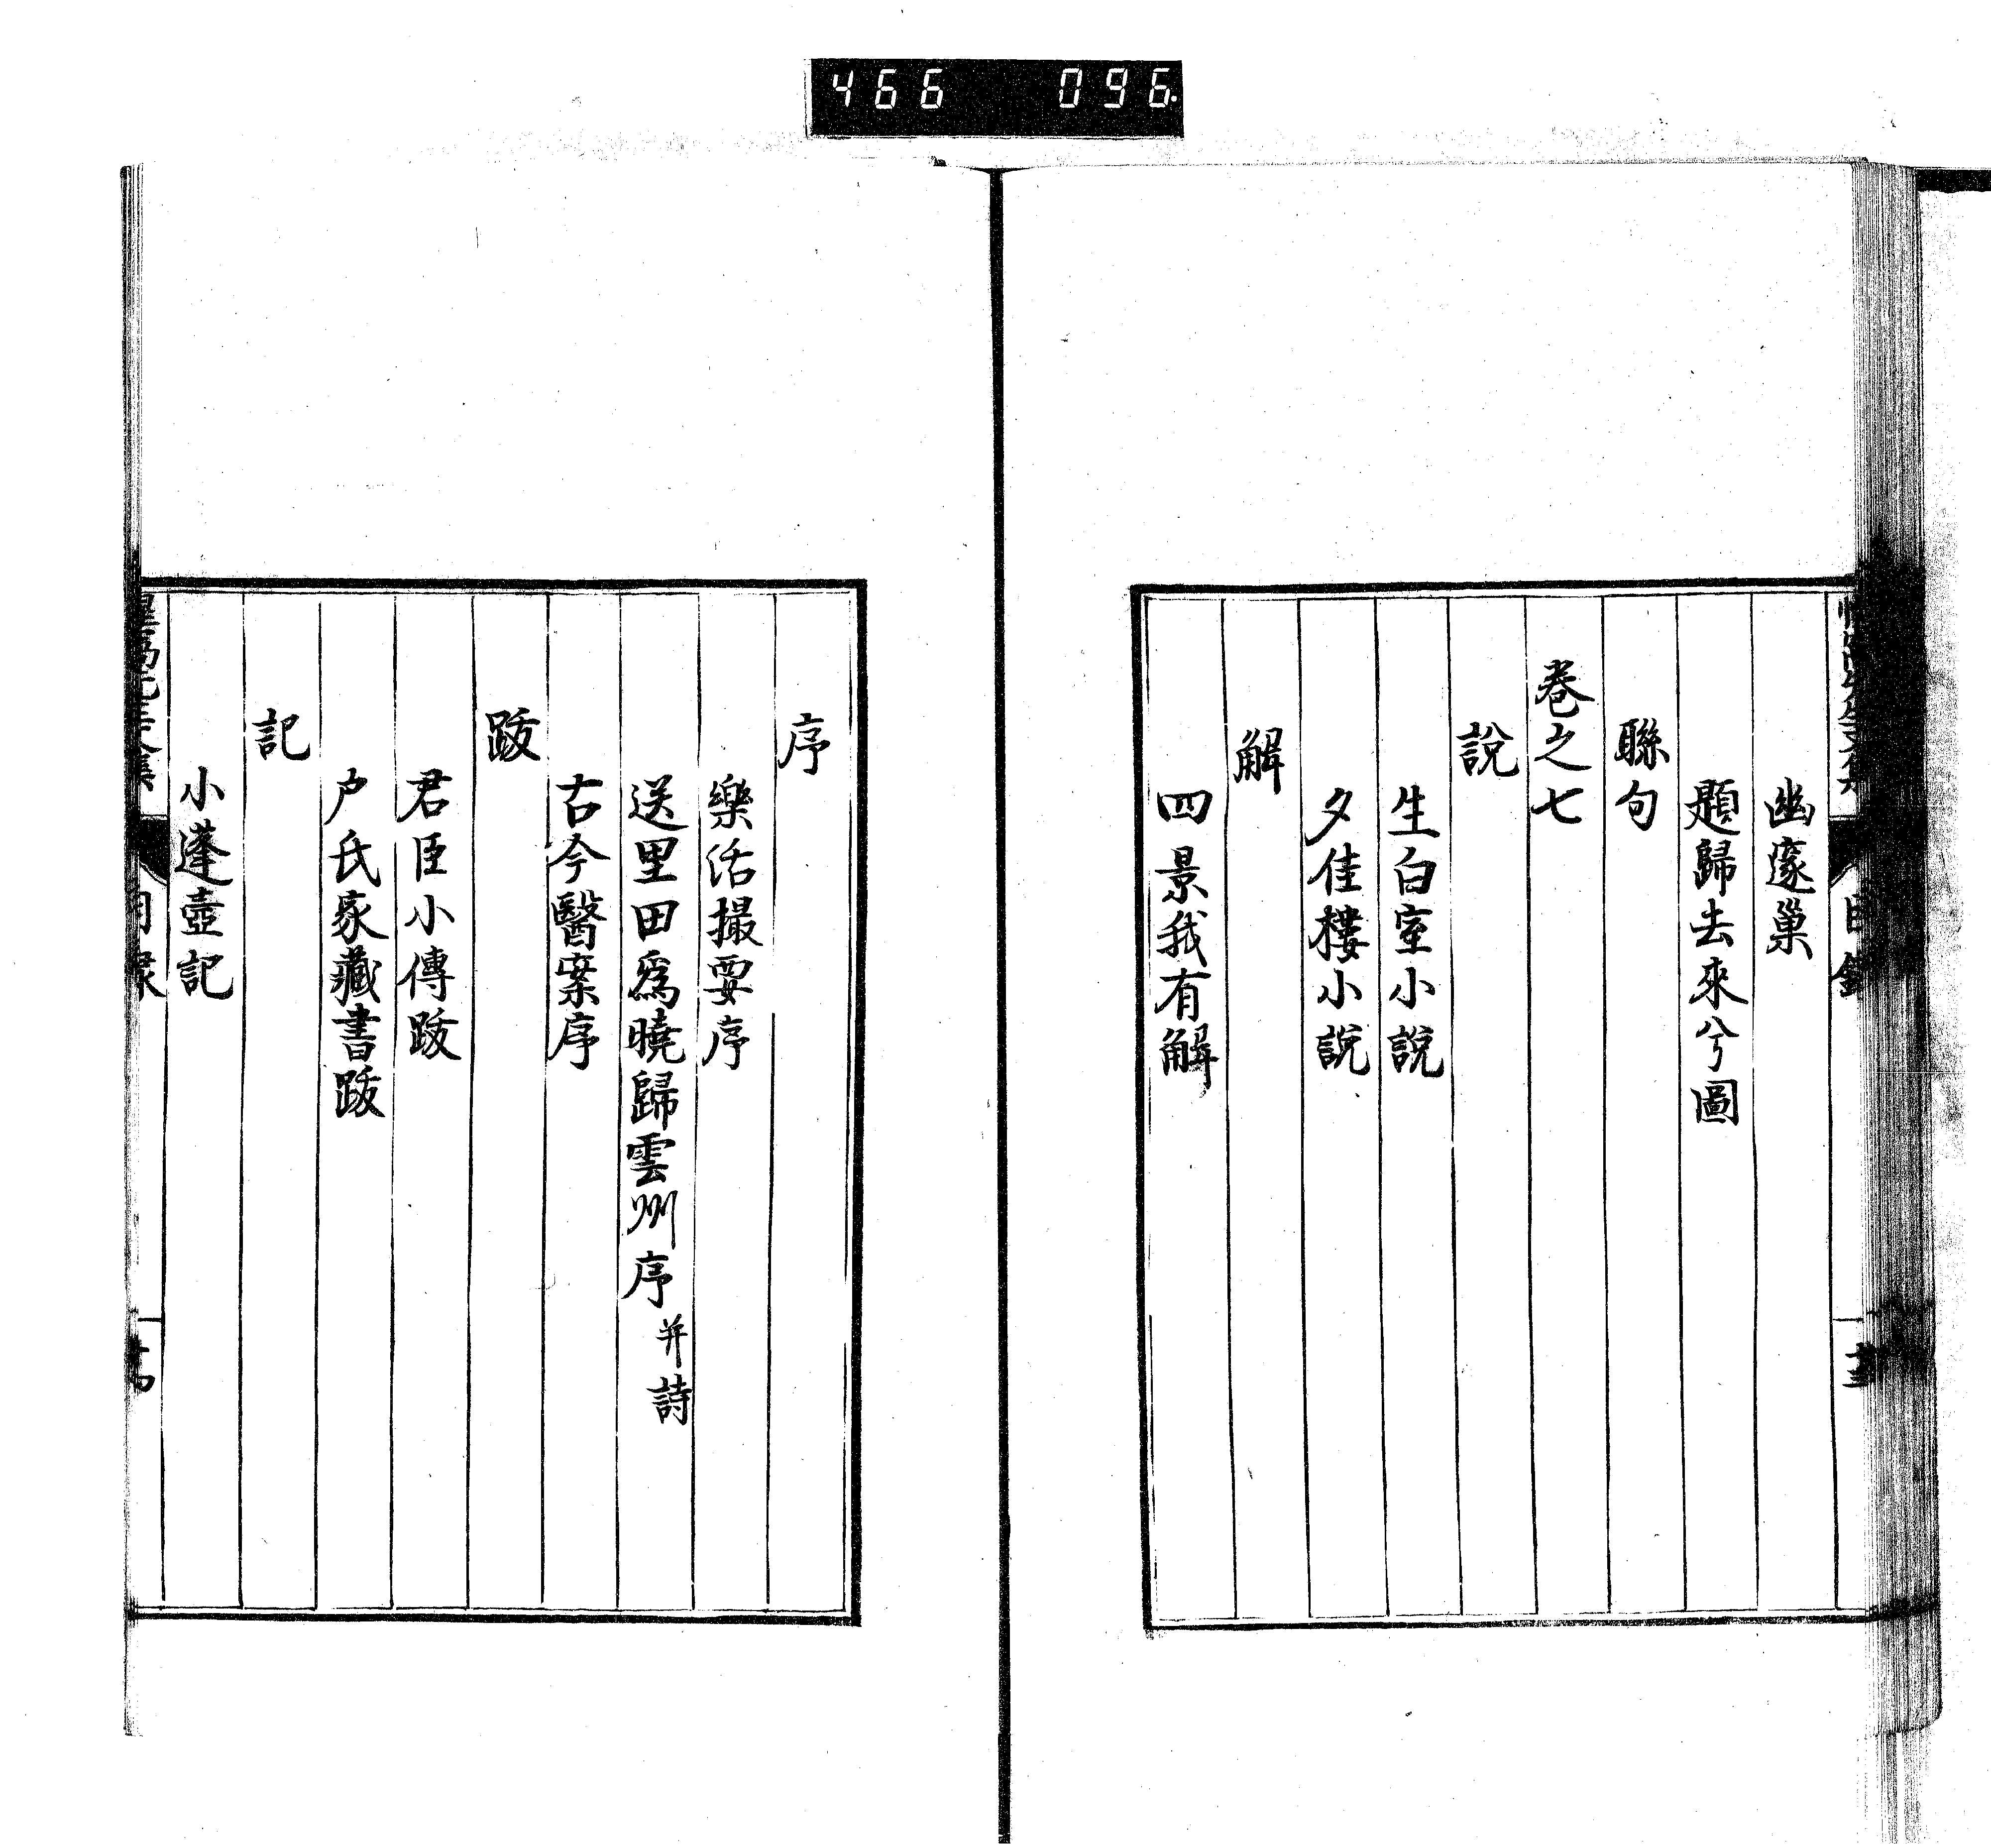 466 096
幽邃巢
題歸去來兮圖
聯句
卷之七
說
生白室小說
夕佳樓小說
解
四景我有解
序
樂活撮要序
送里田爲曉歸雲州序 并詩
古今醫案序
跋
君臣小傳跋
戶氏家藏書跋
記
小蓬壺記
目錄